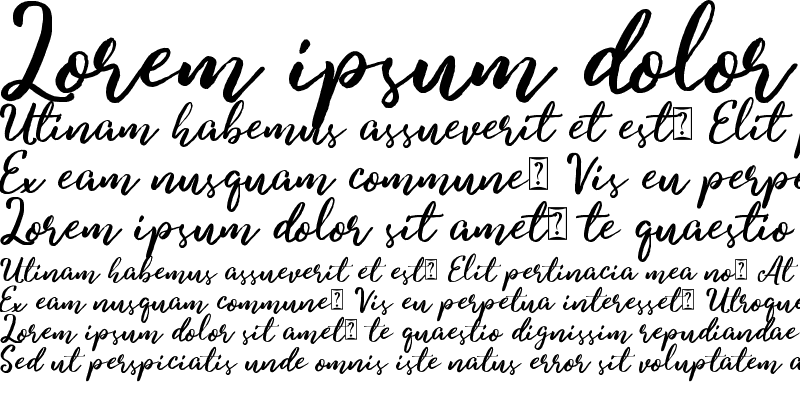 Lorem ipsum dolor
Utinam habemus assueverit et est Elit
Ex eam nusquam commune Vis eu
Lorem ipsum dolor sit amet te quaestio
Utinam habemus assueverit et est Elit pertinacia mea no At
Ex eam nusquam commune Vis eu perpetua interesset Utroque
Lorem ipsum dolor sit amet te quaestio dignissim repudiandae
Sed ut perspiciatis unde omnis iste natus error sit voluptatem a